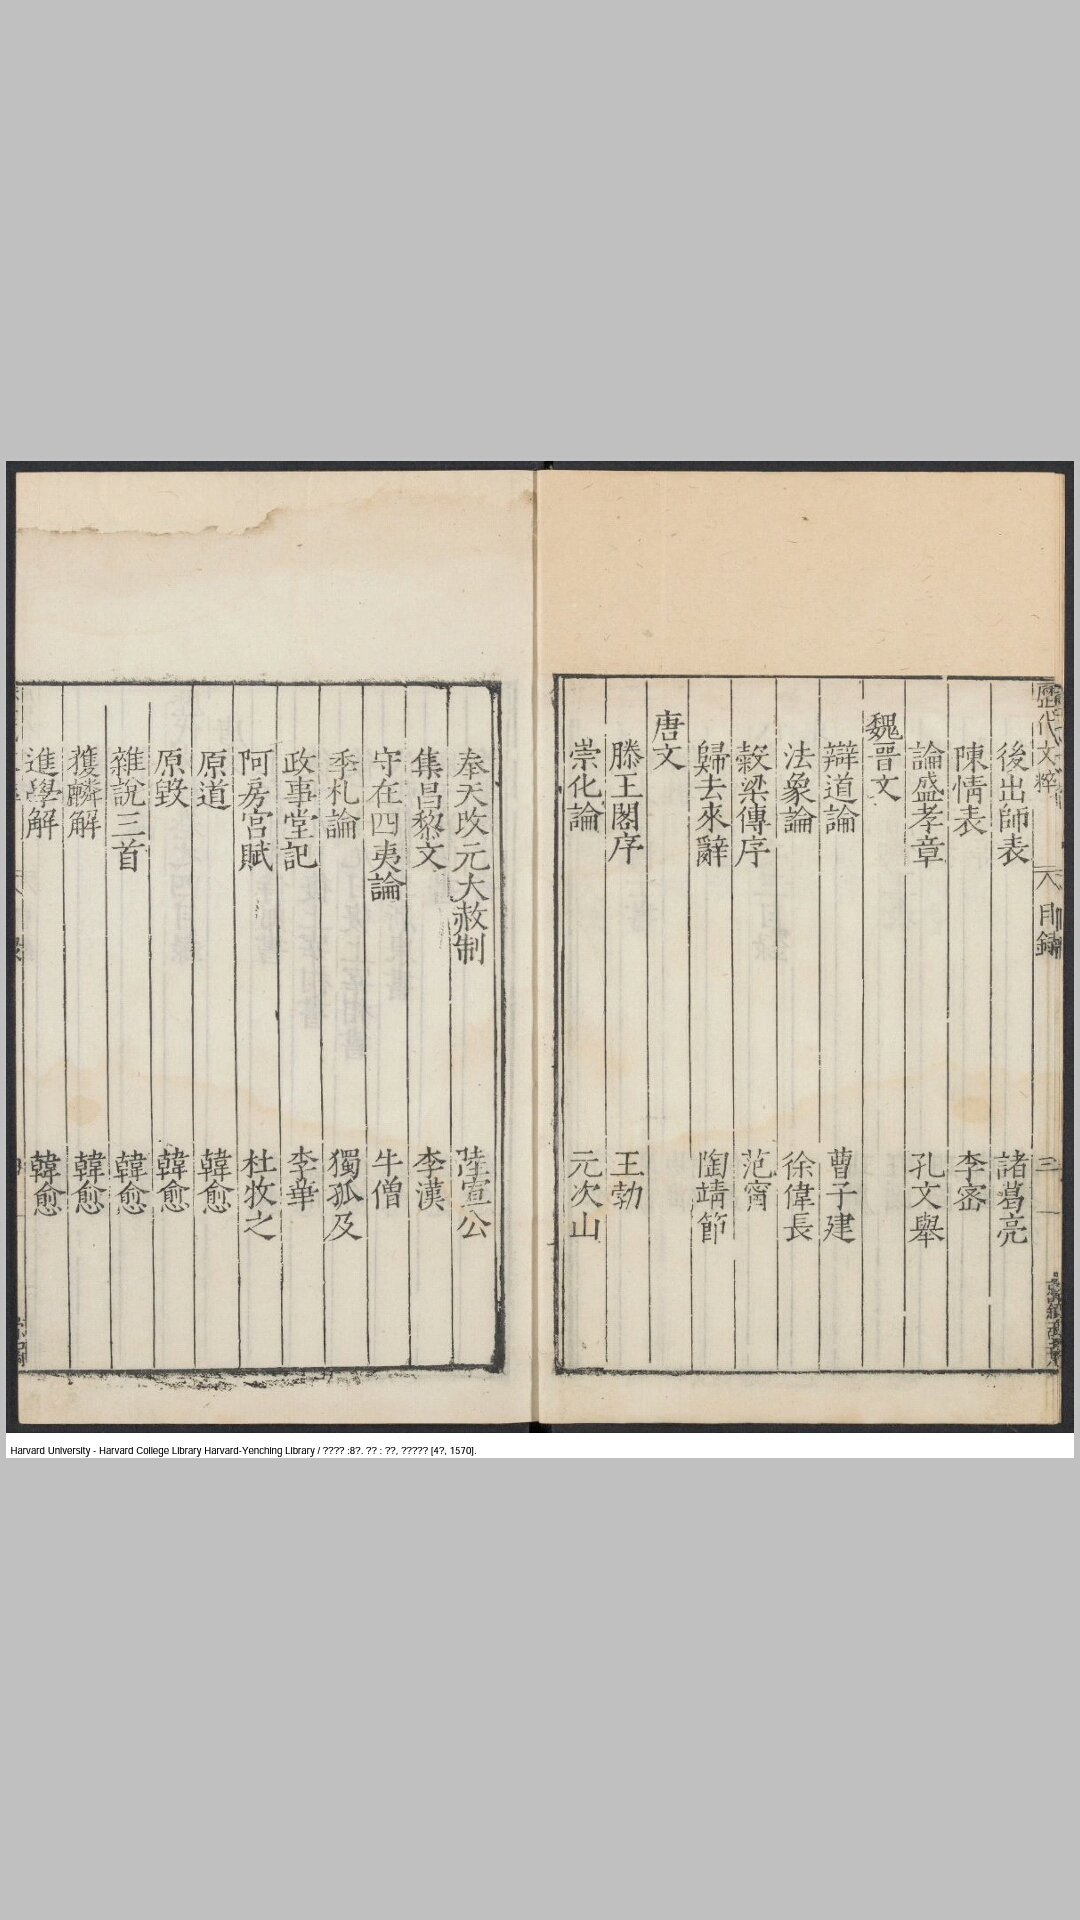 歷代文粹 目錄 三
後出師表 諸葛亮
陳情表 李密
論盛孝章 孔文舉
魏晋文
辯道論 曹子建
法象論 徐偉長
穀梁傳序 范甯
歸去來辭 陶靖節
唐文
滕王閣序 王勃
崇化論 元次山
奉天改元大赦制 陸宣公
集昌黎文 李漢
守在四夷論 牛僧
季札論 獨孤及
政事堂記 李華
阿房宮賦 杜牧之
原道 韓愈
原毀 韓愈
雜說三首 韓愈
獲麟解 韓愈
進學解 韓愈
Harvard University - Harvard College Library Harvard-Yenching Library / ???? :8?. ?? : ??, ????? [4?, 1570].